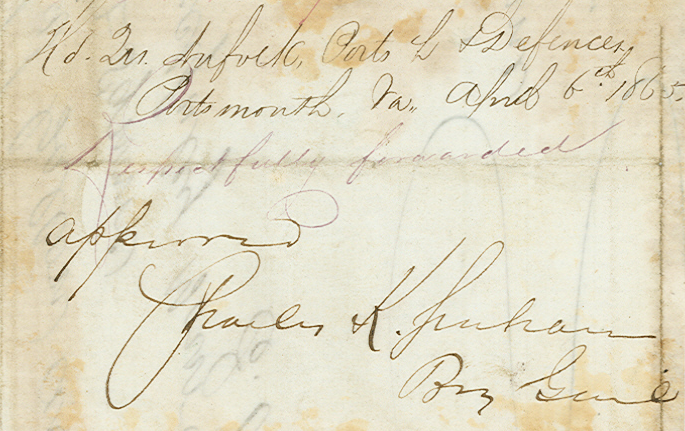 Hd. Qrs. Norfolk, Ports & Defences,
Portsmouth, Va., April 6th 1865.
Respectfully forwarded
approved
Charles K. Graham
Brig Genl